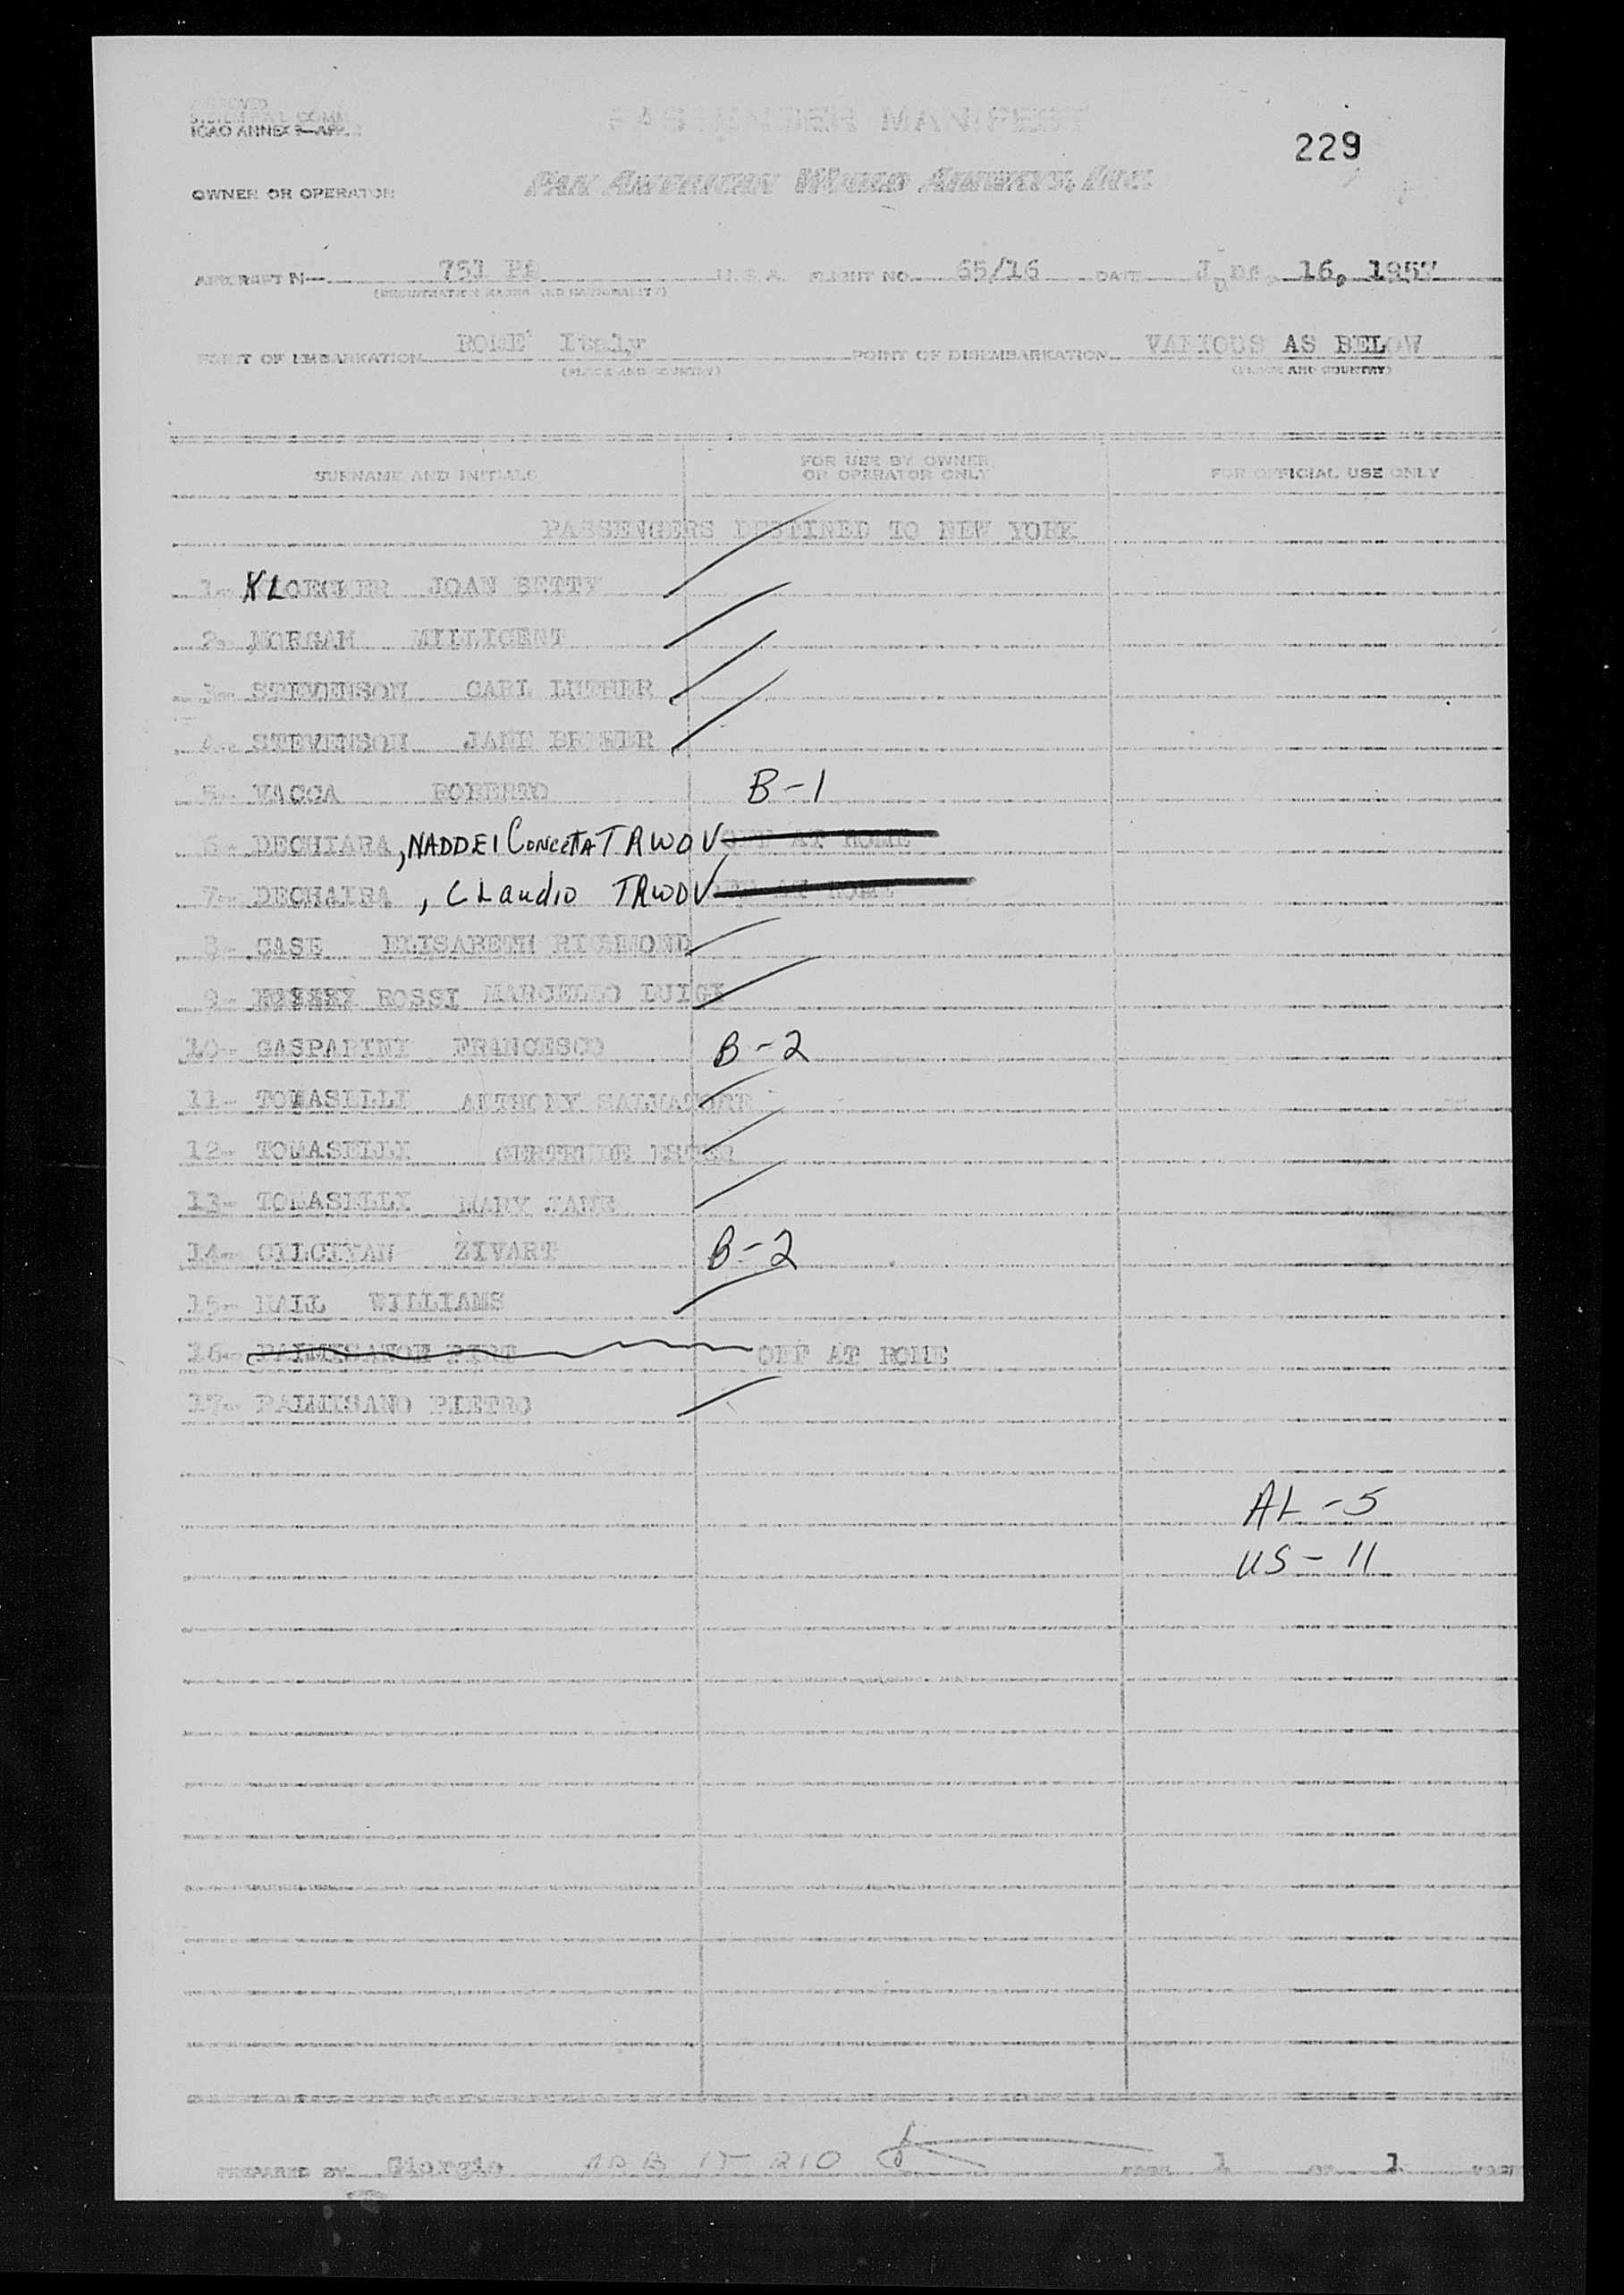 ICAO ANNEX 9—APP.
PASSENGER MANIFEST
229
OWNER OR OPERATOR
PAN AMERICAN WORLD AIRWAYS, INC.
AIRCRAFT N— 751 PA U.S.A. FLIGHT NO. 65/16 DATE June 16, 1957
(REGISTRATION MARKS AND NATIONALITY)
POINT OF EMBARKATION ROME Italy POINT OF DISEMBARKATION VARIOUS AS BELOW
(PLACE AND COUNTRY) (PLACE AND COUNTRY)
SURNAME AND INITIALS FOR USE BY OWNER OR OPERATOR ONLY FOR OFFICIAL USE ONLY
PASSENGERS DESTINED TO NEW YORK
1- JOAN BETTY
2- MORGAN MILLICENT
3- STEVENSON CARL LUTHER
4- STEVENSON JANE
5- VACCA ROBERTO B-1
6- DECHIARA, NADDEI Concetta TRWOV OFF AT ROME
7- DECHAIRA, CLaudio TRWOV OFF AT ROME
8- CASE ELISABETH RICHMOND
9- ROSSI MARCELLO LUIGI
10- GASPARINI FRANCESCO B-2
11- TOMASELLI ANTHONY SALVATORE
12- TOMASELLI GERTRUDE
13- TOMASELLI MARY JANE
14- CILCIYAN ZIVART B-2
15- HALL WILLIAMS
16- OFF AT ROME
17- PALMISANO PIETRO
AL - 5
US - 11
PREPARED BY Giorgio PAGE 1 OF 1